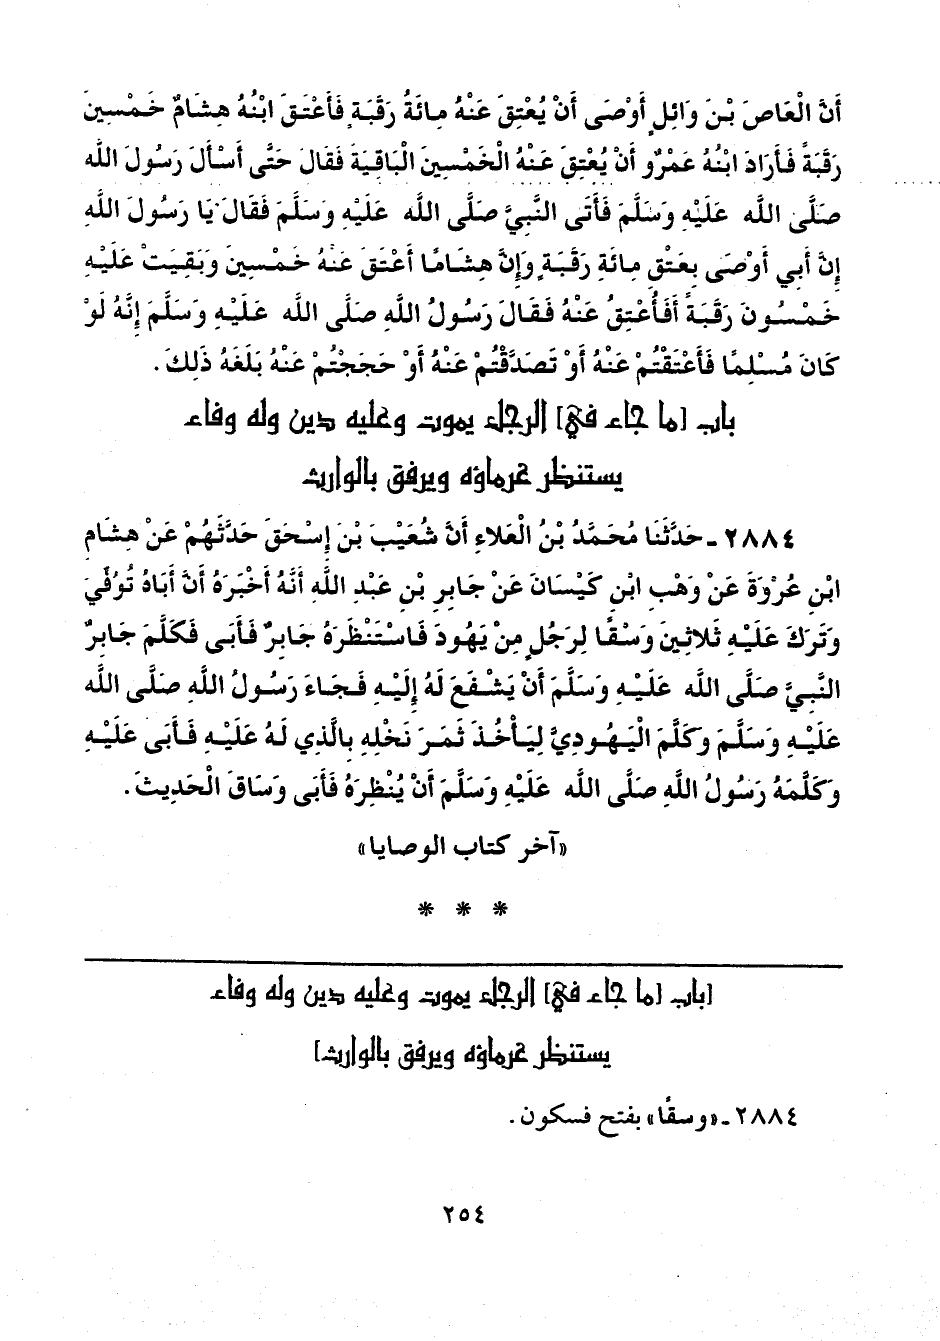 أَنَّ الْعَاصَ بْنَ وَائِلٍ أَوْصَى أَنْ يُعْتِقَ عَنْهُ مِائَةُ رَقَبَةٍ فَأَعْتَقَ ابْنُهُ هِشَامٌ خَمْسِينَ
رَقَبَةً فَأَرَادَ ابْنُهُ عَمْرٌو أَنْ يُعْتِقَ عَنْهُ الْخَمْسِينَ الْبَاقِيَةَ فَقَالَ حَتَّى أَسْأَلَ رَسُولَ اللَّه
صَلَّى اللَّه عَلَيْهِ وَسَلَّمَ فَأَتَى النَّبِيَّ صَلَّى اللَّه عَلَيْهِ وَسَلَّمَ فَقَالَ يَا رَسُولَ اللَّهِ
إِنَّ أَبِي أَوْصَى بِعَتْقِ مِائَةِ رَقَبَةٍ وَإِنَّ هِشَامًا أَعْتَقَ عَنْهُ خَمْسِينَ وَبَقِيَتْ عَلَيْهِ
خَمْسُونَ رَقَبَةً أَفَأُعْتِقُ عَنْهُ فَقَالَ رَسُولُ اللَّهِ صَلَّى اللَّه عَلَيْهِ وَسَلَّمَ إِنَّهُ لَوْ
كَانَ مُسْلِمًا فَأَعْتَقْتُمْ عَنْهُ أَوْ تَصَدَّقْتُمْ عَنْهُ أَوْ حَجَجْتُمْ عَنْهُ بَلَغَهُ ذَلِكَ.
باب [ما جاء في] الرجل يموت وعليه دين وله وفاء
يستنظر غرماؤه ويرفق بالوارث
٢٨٨٤ ـ حَدَّثَنَا مُحَمَّدُ بْنُ الْعَلَاءِ أَنَّ شُعَيْبَ بْنَ إِسْحَقَ حَدَّثَهُمْ عَنْ هِشَامِ
ابْنِ عُرْوَةَ عَنْ وَهْبِ ابْنِ كَيْسَانَ عَنْ جَابِرِ بْنِ عَبْدِ اللَّهِ أَنَّهُ أَخْبَرَهُ أَنَّ أَبَاهُ تُوُفِّيَ
وَتَرَكَ عَلَيْهِ ثَلَاثِينَ وَسْقًا لِرَجُلٍ مِنْ يَهُودَ فَاسْتَنْظَرَهُ جَابِرٌ فَأَبَى فَكَلَّمَ جَابِرٌ
النَّبِيَّ صَلَّى اللَّه عَلَيْهِ وَسَلَّمَ أَنْ يَشْفَعَ لَهُ إِلَيْهِ فَجَاءَ رَسُولُ اللَّهِ صَلَّى اللَّه
عَلَيْهِ وَسَلَّمَ وَكَلَّمَ الْيَهُودِيَّ لِيَأْخُذَ ثَمَرَ نَخْلِهِ بِالَّذِي لَهُ عَلَيْهِ فَأَبَى عَلَيْهِ
وَكَلَّمَهُ رَسُولُ اللَّهِ صَلَّى اللَّه عَلَيْهِ وَسَلَّمَ أَنْ يُنْظِرَهُ فَأَبَى وَسَاقَ الْحَدِيثَ.
«آخر كتاب الوصايا»
* * *
[باب [ما جاء في] الرجل يموت وعليه دين وله وفاء
يستنظر غرماؤه ويرفق بالوارث]
٢٨٨٤ ـ «وسقًا» بفتح فسكون.
٢٥٤